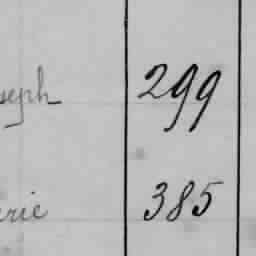 seph 299
erie 385